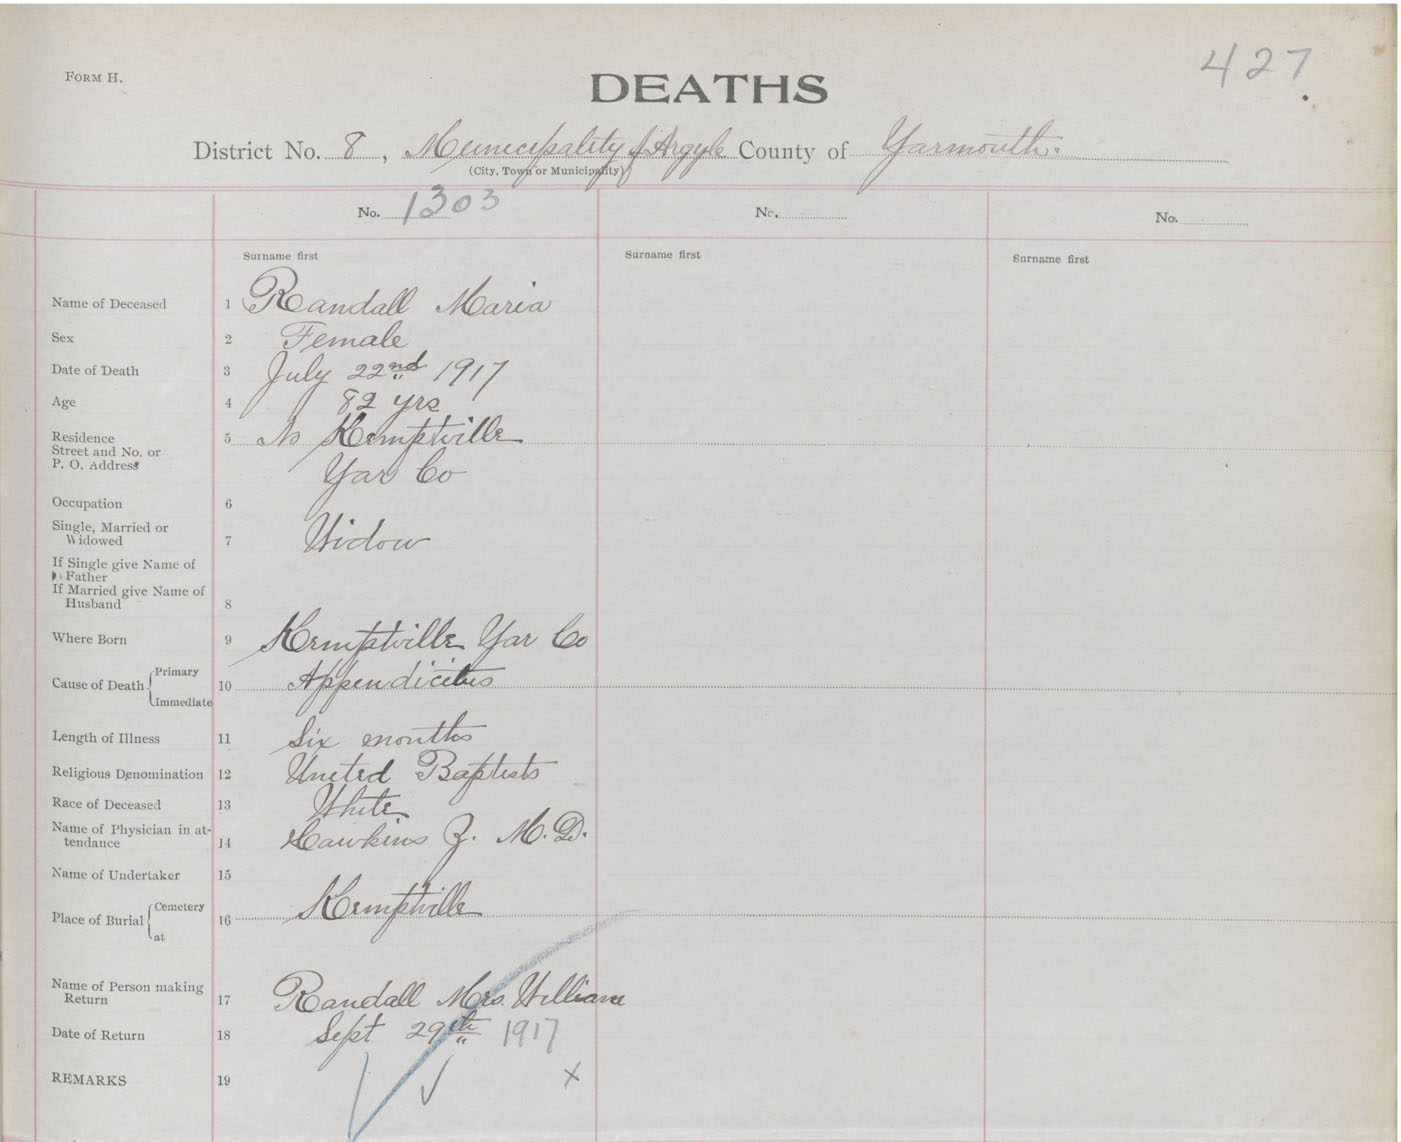 427
FORM H.
DEATHS
District No. 8, Municipality of Argyle County of Yarmouth.
(City, Town or Municipality)
No. 1303 No. No.
Surname first Surname first Surname first
Name of Deceased 1 Randall Maria
Sex 2 Female
Date of Death 3 July 22nd 1917
Age 4 82 yrs
Residence 5 No Kemptville
Street and No. or
P. O. Address Yar Co
Occupation 6
Single, Married or
Widowed 7 Widow
If Single give Name of
Father
If Married give Name of
Husband 8
Where Born 9 Kemptville Yar Co
Primary
Cause of Death 10 Appendicitus
Immediate
Length of Illness 11 Six months
Religious Denomination 12 United Baptists
Race of Deceased 13 White
Name of Physician in at-
tendance 14 Hawkins Z. M.D.
Name of Undertaker 15
Cemetery
Place of Burial 16 Kemptville
at
Name of Person making
Return 17 Randall Mrs. William
Date of Return 18 Sept 29th 1917
REMARKS 19 x